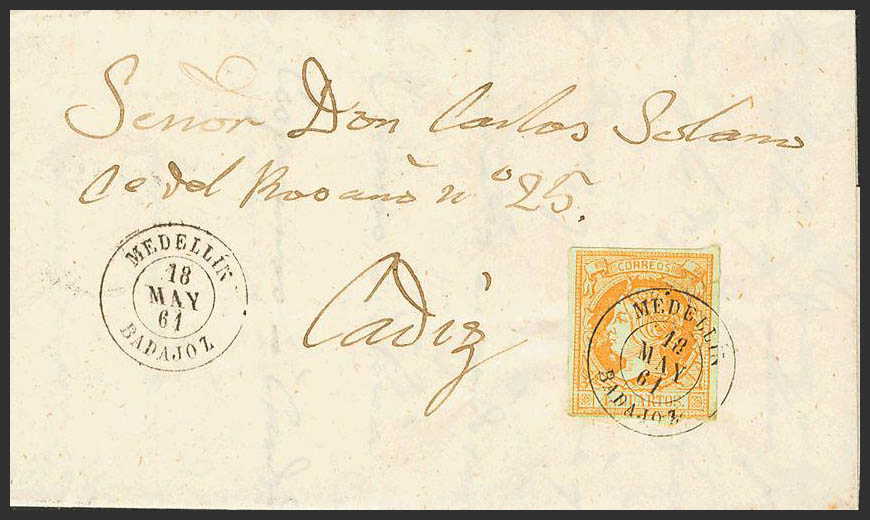 Señor Don Carlos Solano
Ce del Rosario nº 25.
Cadiz
MEDELLIN
18
MAY
61
BADAJOZ
CORREOS
MEDELLIN
18
MAY
61
BADAJOZ
CUARTOS.